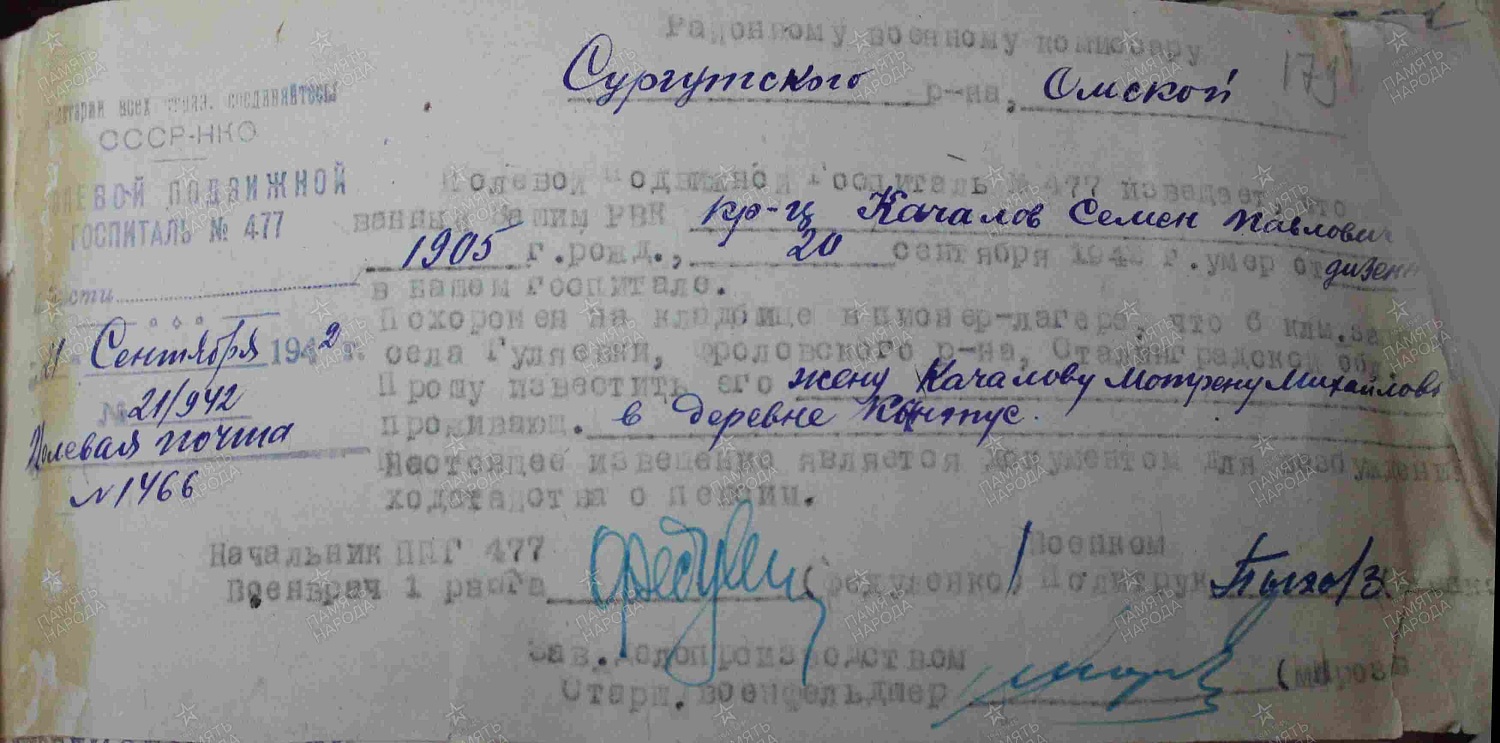 Районному военному комиссару
Сургутского р-на, Омской
179
всех стран, соединяйтесь
СССР-НКО
ПОДВИЖНОЙ
ГОСПИТАЛЬ № 477
Сентября 1942 г.
№ 21/942
Полевая почта
№ 1466
Полевой подвижной госпиталь № 477 извещает, что
Вашим РВК кр-ц Качалов Семен Павлович
1905 г.рожд., 20 сентября 194 г. умер от
в нашем госпитале.
Похоронен на кладбище в пионер-лагере, что 6 клм.
села Гуляевки, Фроловского р-на, Сталинградской обл.
Прошу известить его жену Качалову Мотрену Михайлов
проживающ. в деревне
Настоящее извещение является документом для возбуждения
ходатайства о пенсии.
Начальник ППГ 477 Военком
Военврач 1 ранга (Федуленко) Политрук
Зав. делопроизводством
Старш. военфельдшер (мороз
ПАМЯТЬ НАРОДА